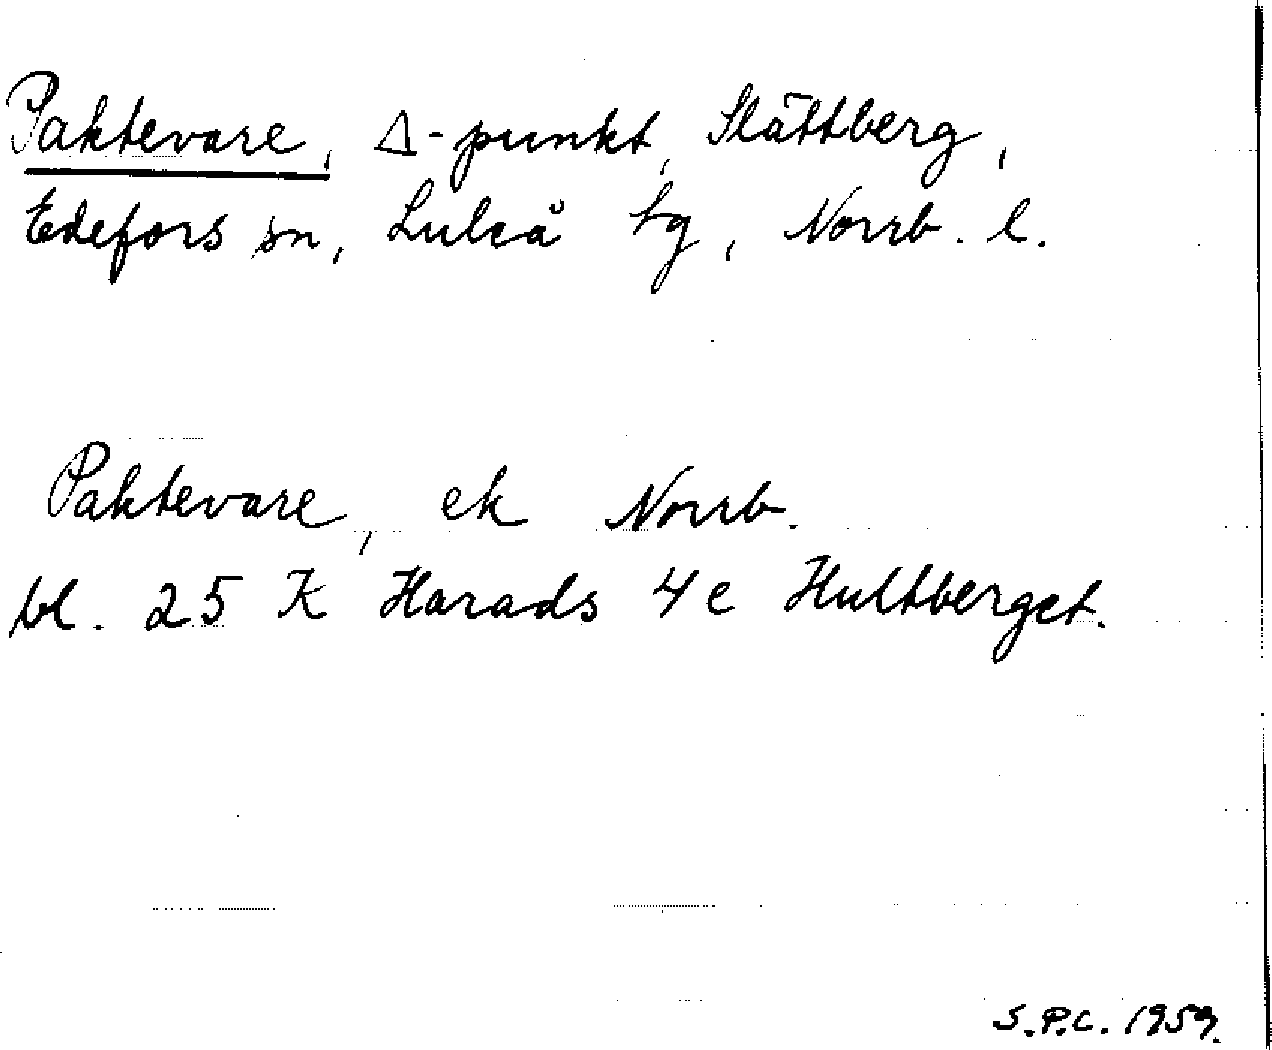 Paktevare, Δ-punkt, Slättberg,
Edefors sn, Luleå tg, Norrb. l.
Paktevare, ek Norrb.
bl. 25 K Harads 4c Hultberget.
S.P.C. 1959.